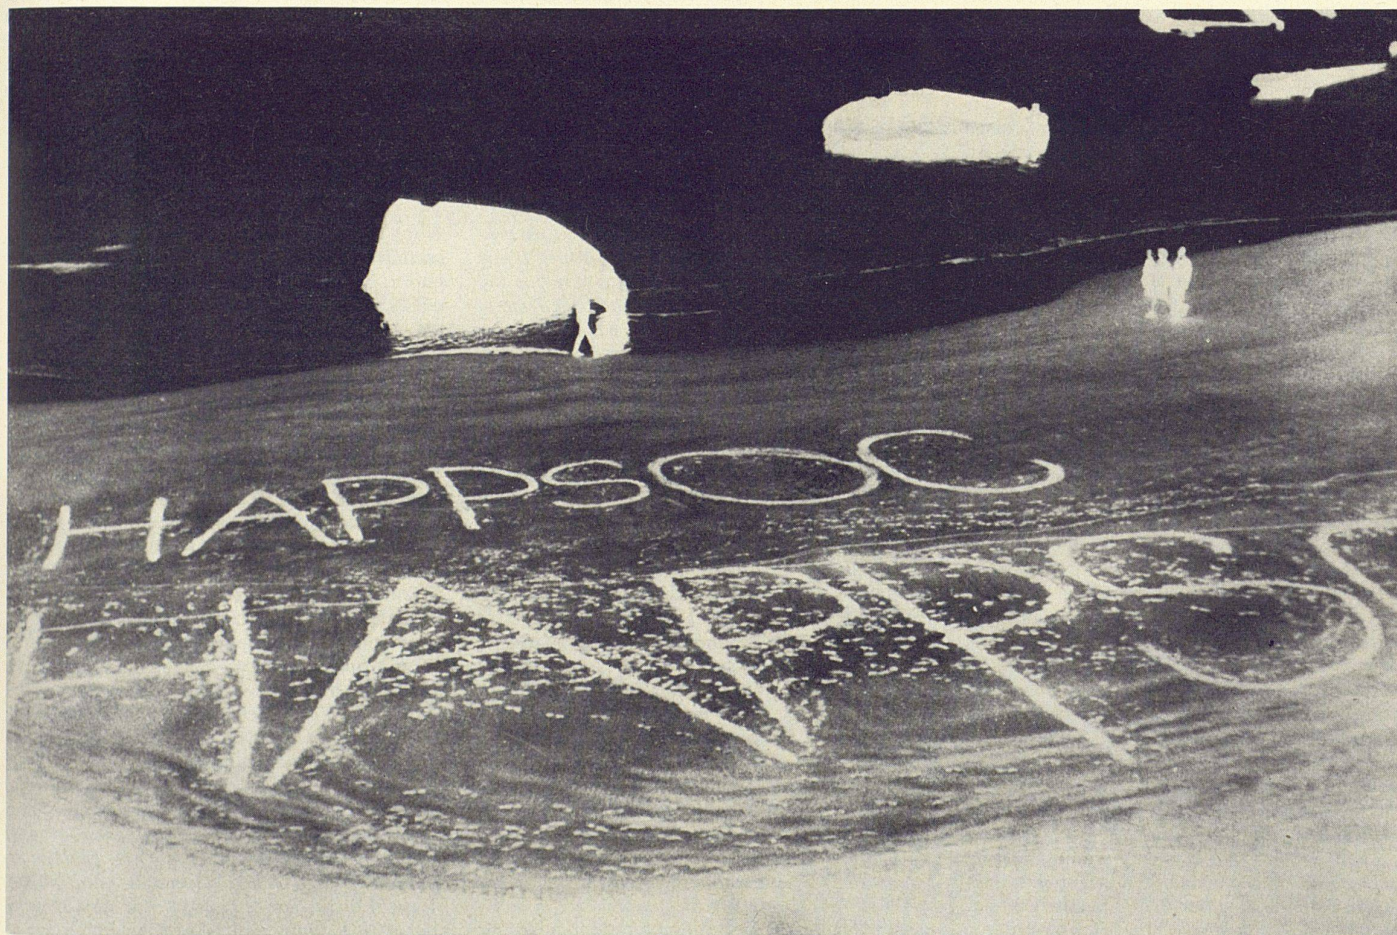 HAPPSOC
HAPPS